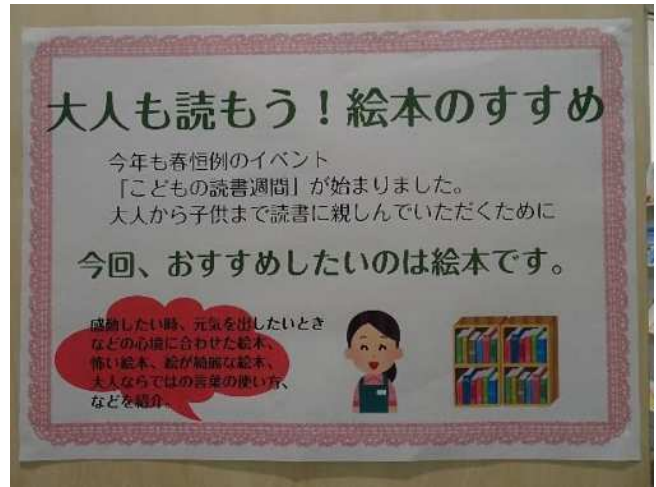 大人も読もう！絵本のすすめ
今年も春恒例のイベント
「こどもの読書週間」が始まりました。
大人から子供まで読書に親しんでいただくために
今回、おすすめしたいのは絵本です。
感動したい時、元気を出したいとき
などの心境に合わせた絵本、
怖い絵本、絵が綺麗な絵本、
大人ならではの言葉の使い方、
などを紹介。